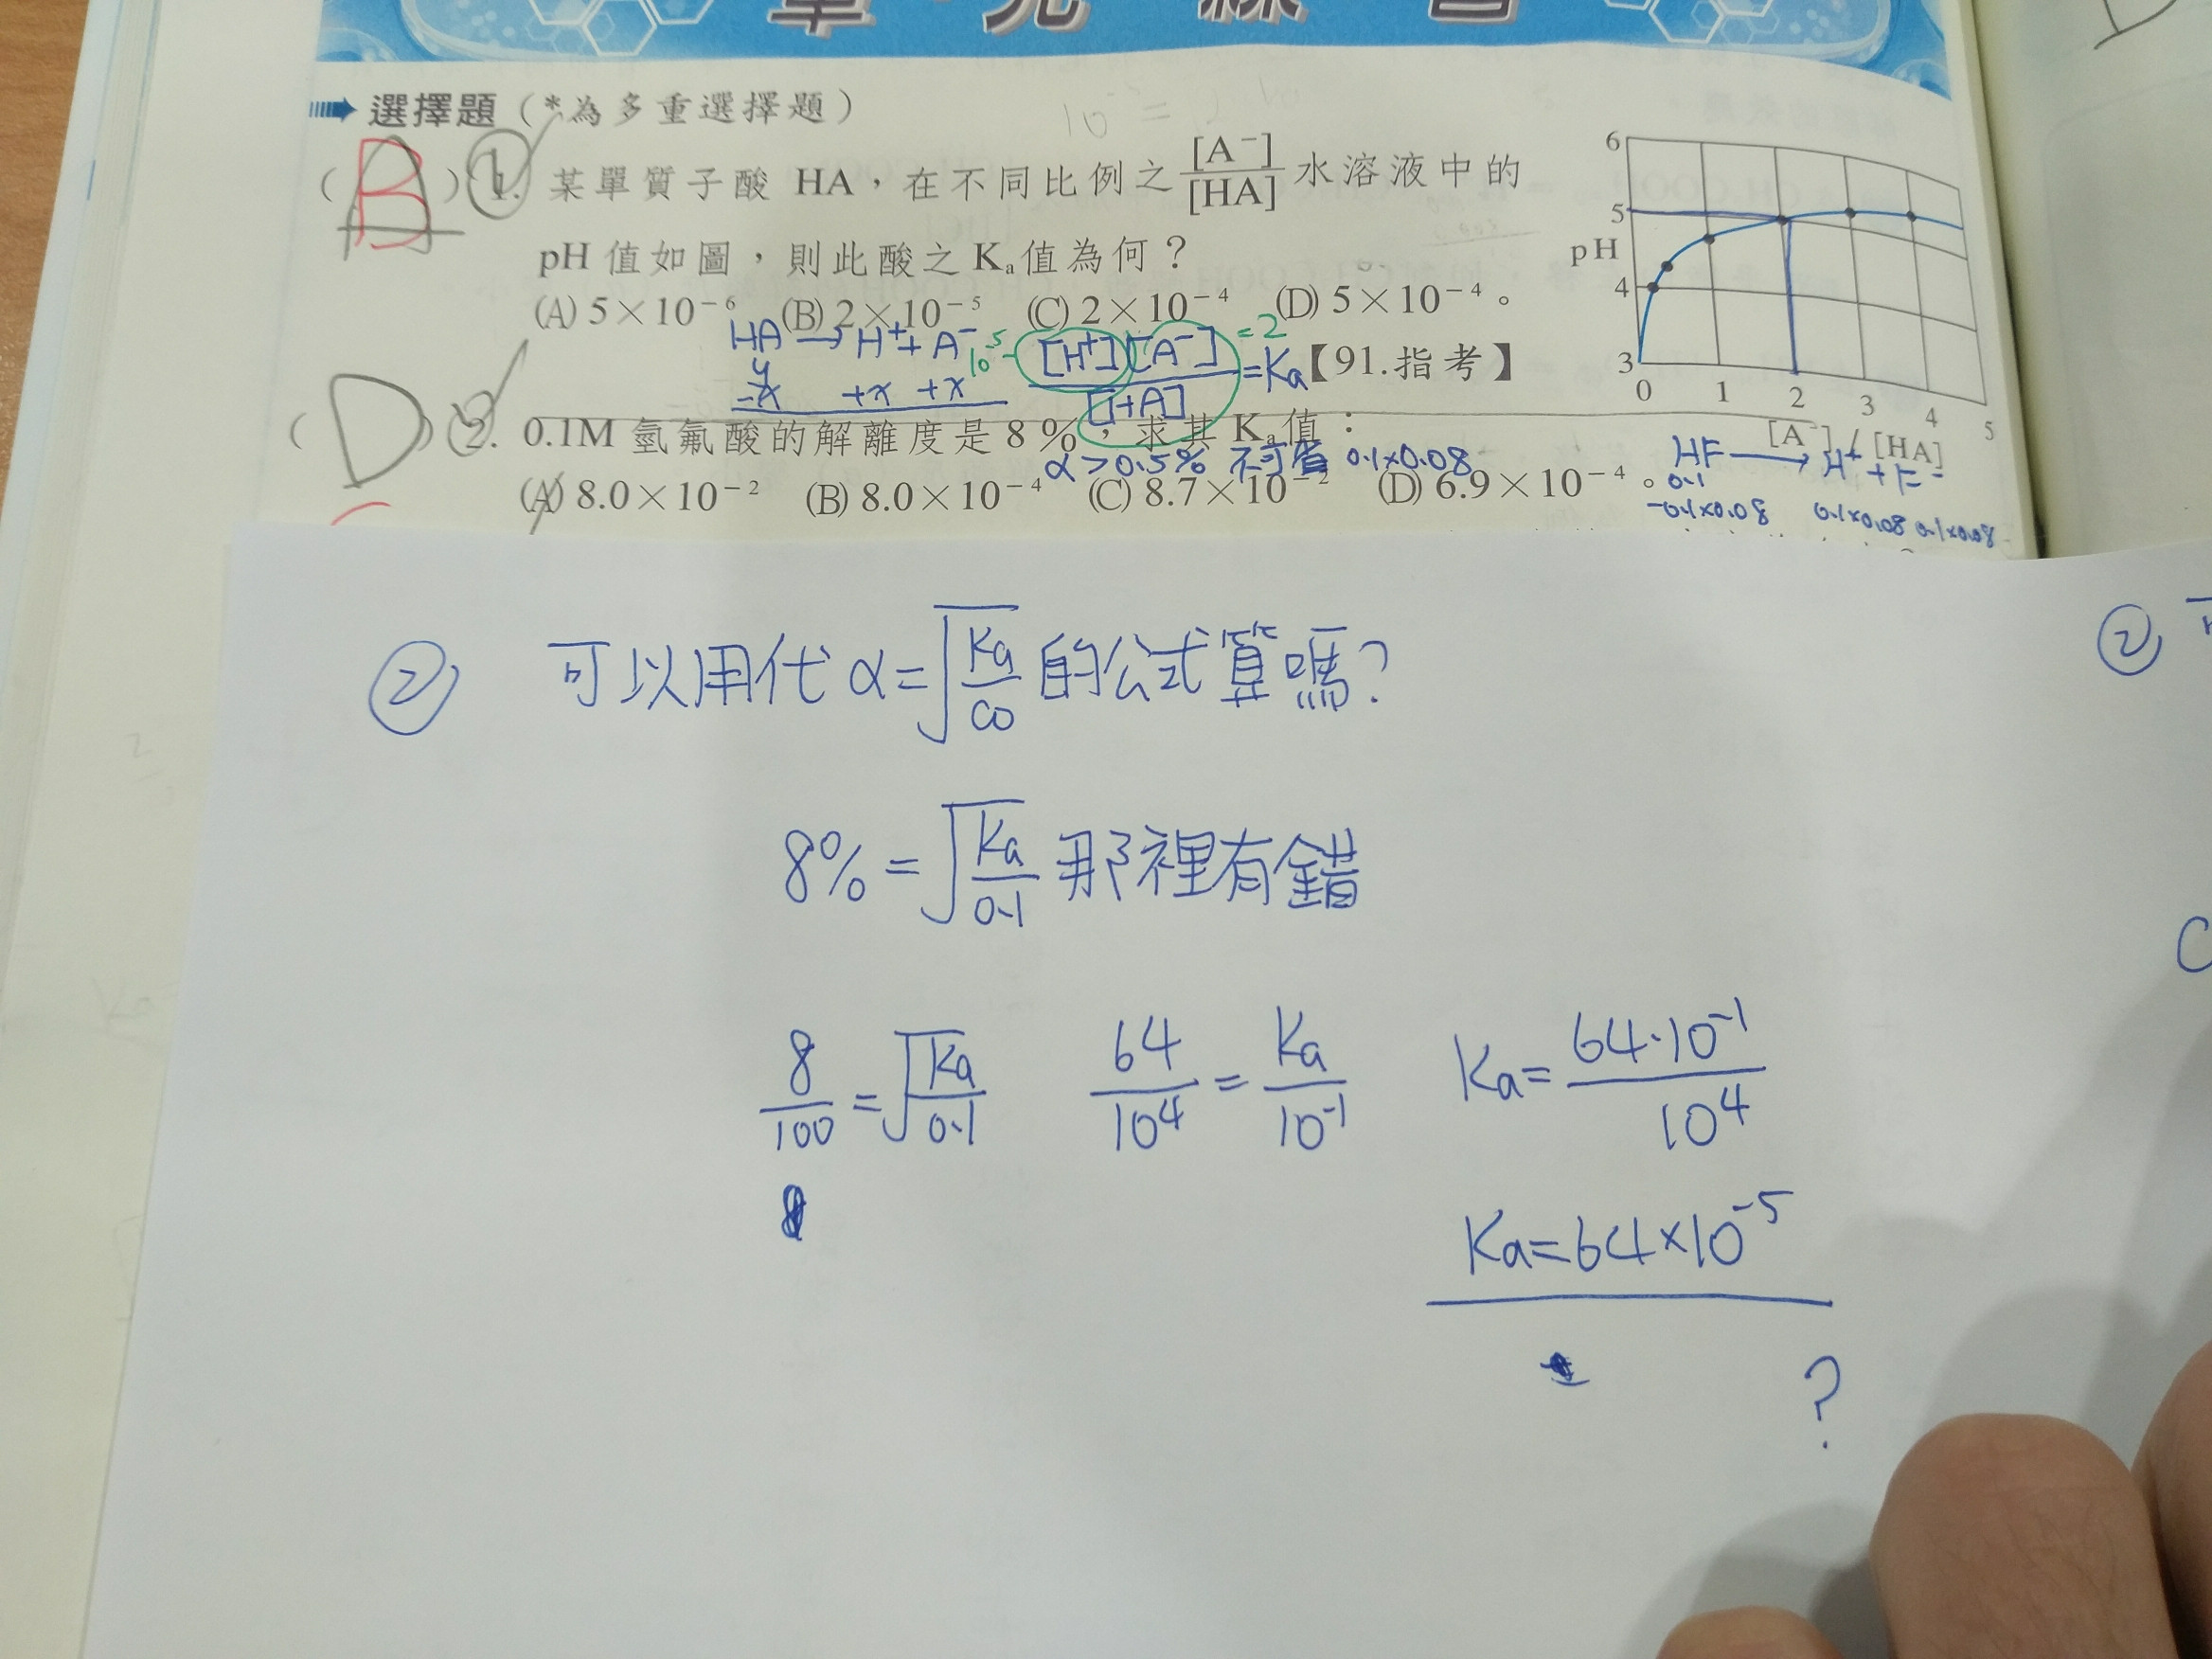 單元練習
選擇題（*為多重選擇題）
(B) 1. 某單質子酸 HA，在不同比例之 [A⁻]/[HA] 水溶液中的
pH 值如圖，則此酸之 Kₐ值為何？
(A) 5×10⁻⁶ (B) 2×10⁻⁵ (C) 2×10⁻⁴ (D) 5×10⁻⁴。
【91.指考】
HA → H⁺ + A⁻
y
-x +x +x
10⁻⁵ [H⁺][A⁻]/[HA] = Ka
= 2
6
5
pH
4
3
0 1 2 3 4 5
[A⁻] / [HA]
(D) 2. 0.1M 氫氟酸的解離度是 8%，求其 Kₐ值：
α > 0.5% 不可省 0.1×0.08
(A) 8.0×10⁻² (B) 8.0×10⁻⁴ (C) 8.7×10⁻² (D) 6.9×10⁻⁴。
HF → H⁺ + F⁻
0.1
-0.1×0.08 0.1×0.08 0.1×0.08
② 可以用代 α=√(Ka/C0) 的公式算嗎?
8% = √(Ka/0.1) 那裡有錯
8/100 = √(Ka/0.1) 64/10⁴ = Ka/10⁻¹ Ka = 64·10⁻¹/10⁴
Ka=64×10⁻⁵
?
②